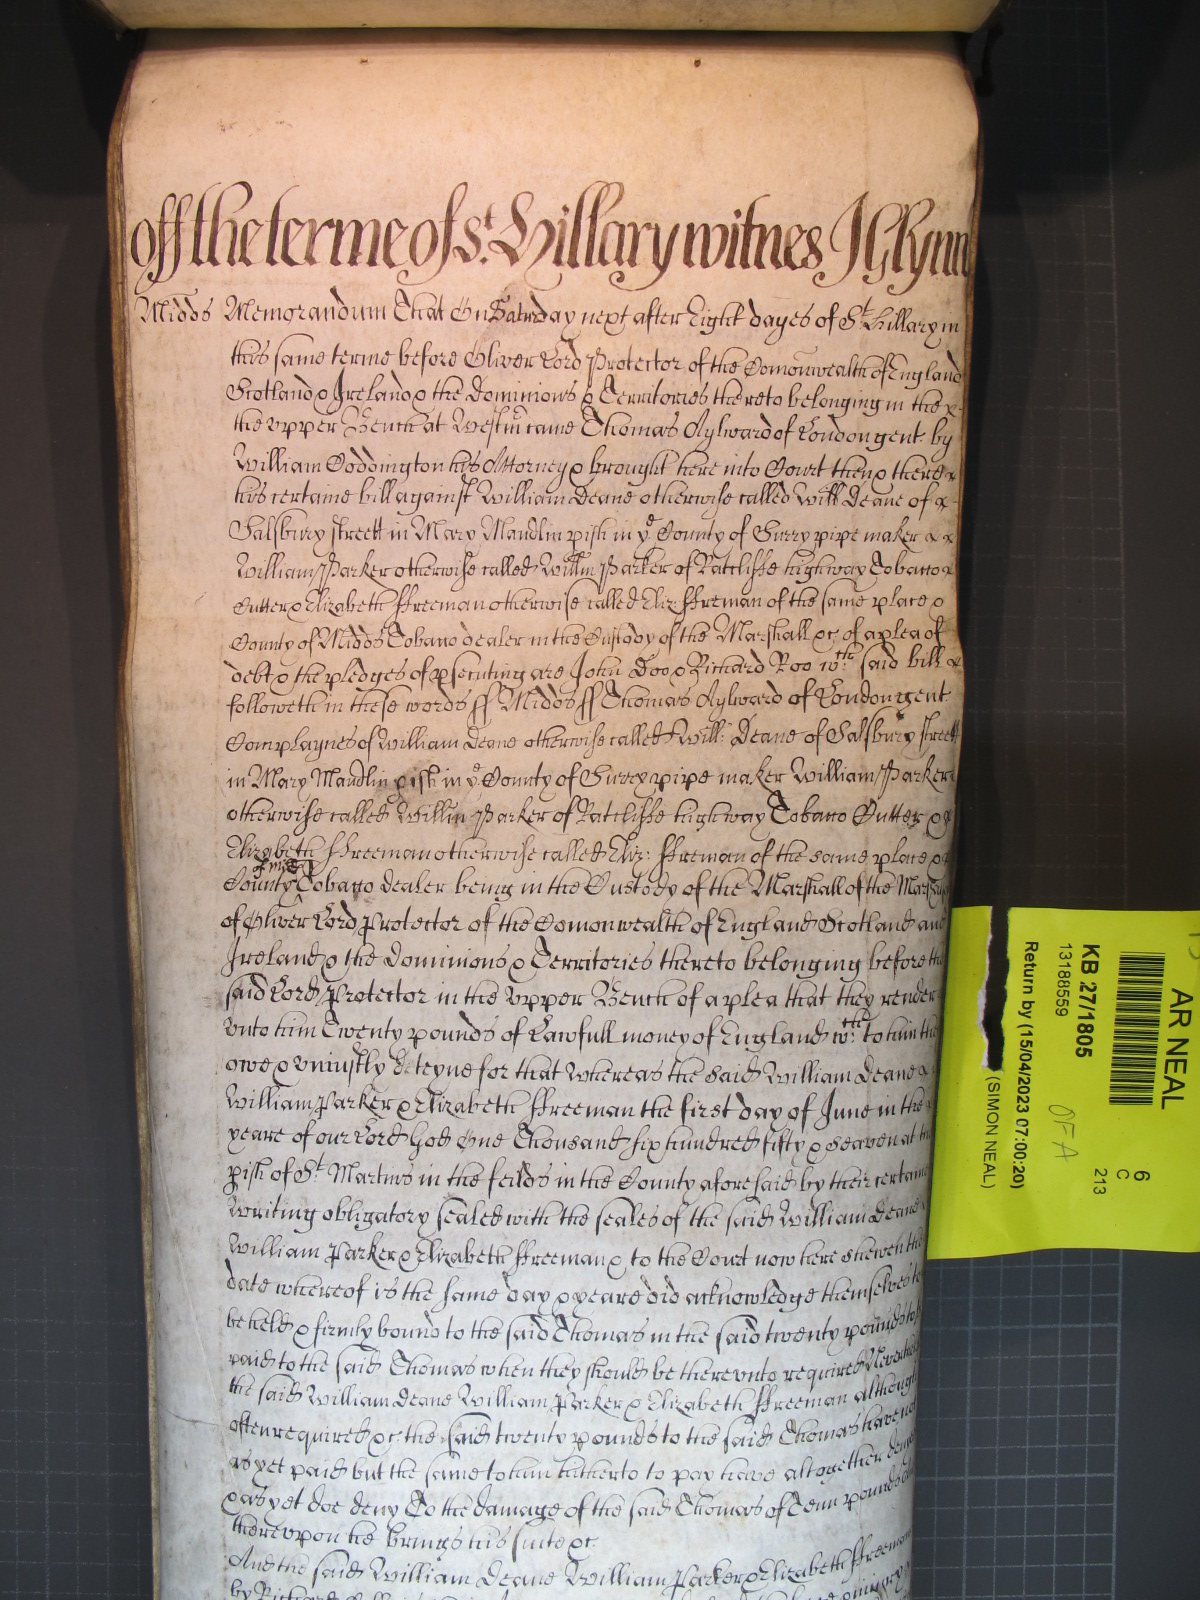 off the terme of St. Hillary witnes J Glynn
Midds Memorandum That On Saturday next after Eight dayes of St. Hillary in
this same terme before Oliver Lord Protector of the Comonwealth of England
Scotland & Ireland & the Dominions & Territories thereto belonging in the
the vpper Bench at Westm came Thomas Aylward of London gent. by
William Coddington his Attorney & brought here into Court then & there
his certaine bill against William Deane otherwise called Will Deane of
Salsbury streett in Mary Maudlin pish in ye County of Surry pipe maker
William Parker otherwise called Willm Parker of Ratcliffe highway Tobacco
Cutter & Elizabeth ffreeman otherwise called Eliz: ffreman of the same place &
County of Midds Tobacco dealer in the Custody of the Marshall &c. of a plea of
debt & the pledges of psecuting are John Doo & Richard Roo wth. said bill
followeth in these words ff Midds ff Thomas Aylward of London gent
Complaynes of William Deane otherwise called Will: Deane of Salsbury streett
in Mary Maudlin pish in ye County of Surry pipe maker William Parker
otherwise called Willm Parker of Ratcliffe highway Tobacco Cutter &
Elizabeth ffreeman otherwise called Eliz: ffreman of the same place &
County Tobacco dealer being in the Custody of the Marshall of the
of Oliver Lord Protector of the Comonwealth of England Scotland and
Ireland & the Dominions & Territories thereto belonging before the
said Lord Protector in the Vpper Bench of a plea that they render
vnto him Twenty pounds of Lawfull money of England wth. to him the
owe & vniustly deteyne for that Whereas the said William Deane
William Parker & Elizabeth ffreeman the first day of June in the
yeare of our Lord God One Thousand six hundred fifty & seaven at the
pish of St. Martins in the feilds in the County aforesaid by their certaine
Writing obligatory sealed with the seales of the said William Deane
William Parker & Elizabeth ffreeman & to the Court now here shewen the
date whereof is the same day & yeare did acknowledge themselves to
be held & firmly bound to the said Thomas in the said twenty pounds to
paid to the said Thomas when they should be therevnto required
the said William Deane William Parker & Elizabeth ffreeman although
often required &c. the said twenty pounds to the said Thomas have not
as yet paid but the same to him hitherto to pay have altogether
& as yet doe deny To the damage of the said Thomas of Tenn pounds
therevpon he brings his suite &c.
And the said William Deane William Parker & Elizabeth ffreeman
by Richard
AR NEAL
KB 27/1805
13188559
Return by (15/04/2023 07:00:20)
(SIMON NEAL)
6
C
213
OFA